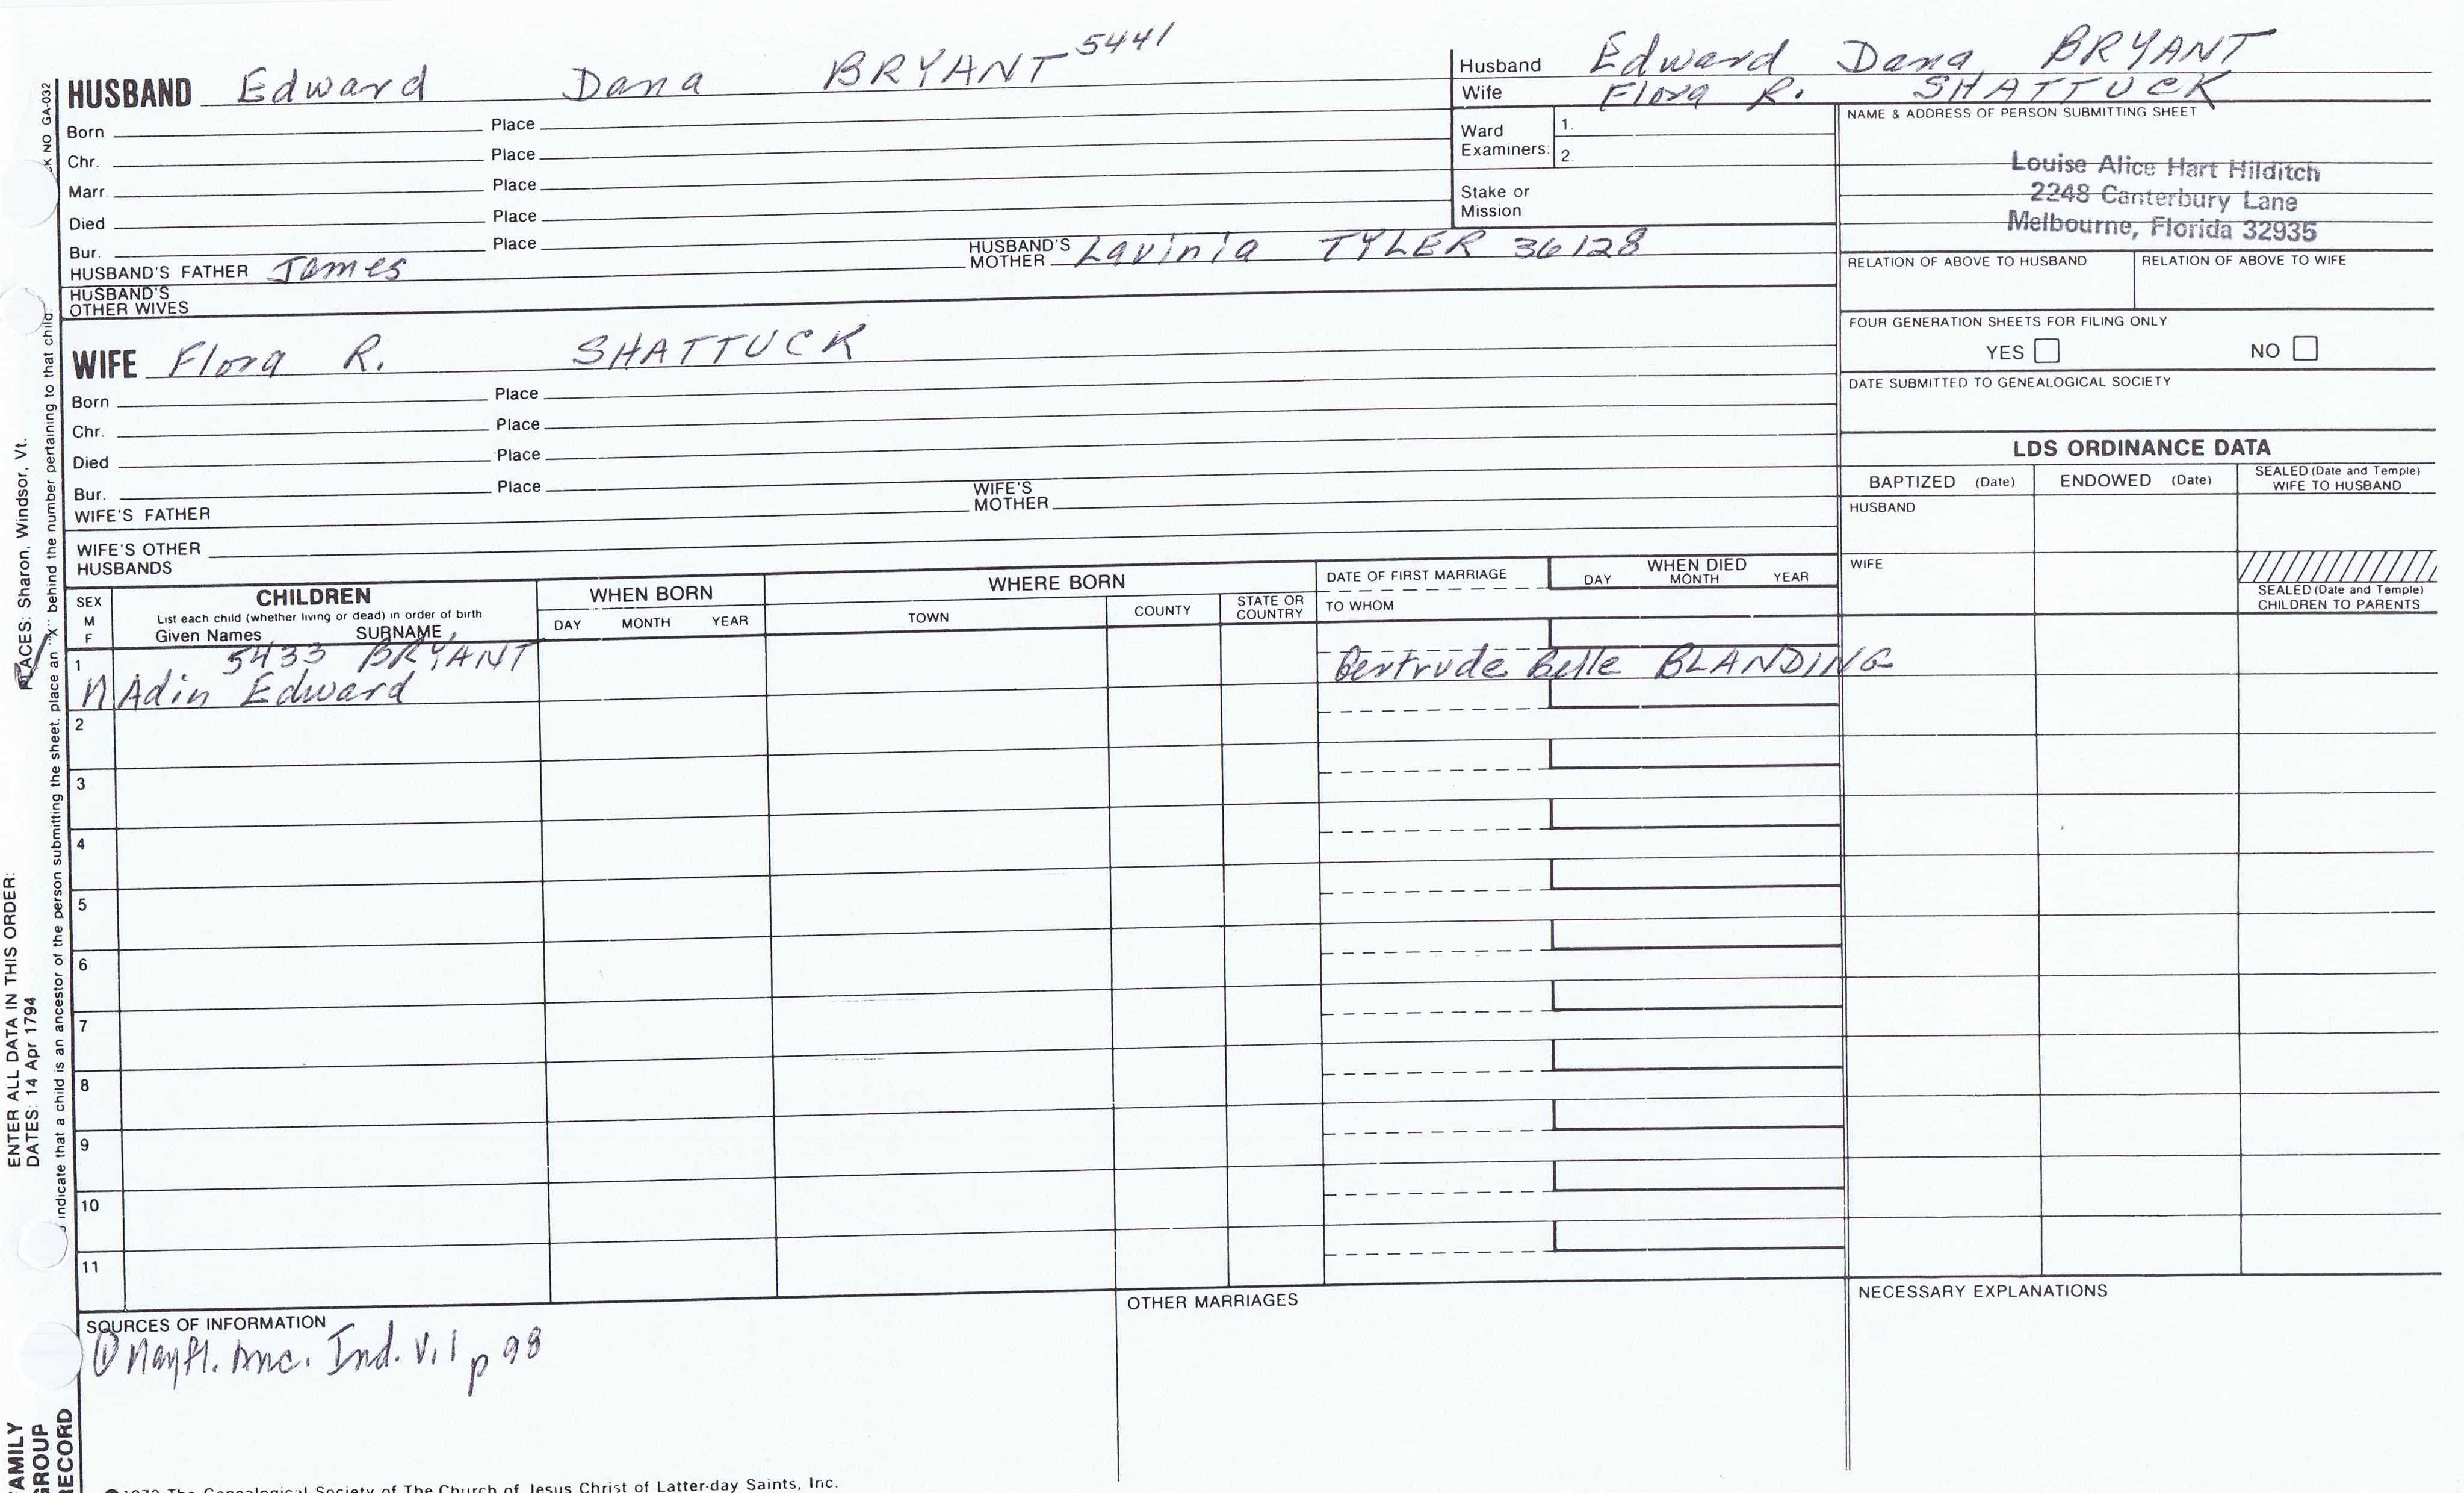 HUSBAND Edward Dana BRYANT 5441
Born Place
Chr. Place
Marr. Place
Died Place
Bur. Place
HUSBAND'S FATHER James HUSBAND'S MOTHER Lavinia TYLER 36128
HUSBAND'S OTHER WIVES
WIFE Flora R. SHATTUCK
Born Place
Chr. Place
Died Place
Bur. Place
WIFE'S FATHER WIFE'S MOTHER
WIFE'S OTHER HUSBANDS
Husband Edward Dana BRYANT
Wife Flora R. SHATTUCK
Ward Examiners: 1.
2.
Stake or Mission
NAME & ADDRESS OF PERSON SUBMITTING SHEET
Louise Alice Hart Hilditch
2248 Canterbury Lane
Melbourne, Florida 32935
RELATION OF ABOVE TO HUSBAND RELATION OF ABOVE TO WIFE
FOUR GENERATION SHEETS FOR FILING ONLY
YES NO
DATE SUBMITTED TO GENEALOGICAL SOCIETY
LDS ORDINANCE DATA
BAPTIZED (Date) ENDOWED (Date) SEALED (Date and Temple) WIFE TO HUSBAND
HUSBAND
WIFE
SEALED (Date and Temple) CHILDREN TO PARENTS
SEX M F
CHILDREN
List each child (whether living or dead) in order of birth
Given Names SURNAME
WHEN BORN
DAY MONTH YEAR
WHERE BORN
TOWN COUNTY STATE OR COUNTRY
DATE OF FIRST MARRIAGE
TO WHOM
WHEN DIED
DAY MONTH YEAR
1 5433 BRYANT
M Adin Edward Gertrude Belle BLANDING
2
3
4
5
6
7
8
9
10
11
SOURCES OF INFORMATION
① Mayfl. Anc. Ind. V.1 p 98
OTHER MARRIAGES
NECESSARY EXPLANATIONS
The Genealogical Society of The Church of Jesus Christ of Latter-day Saints, Inc.
NO GA-032
indicate that a child is an ancestor of the person submitting the sheet, place an "X" behind the number pertaining to that child
ENTER ALL DATA IN THIS ORDER:
DATES: 14 Apr 1794
PLACES: Sharon, Windsor, Vt.
FAMILY
GROUP
RECORD